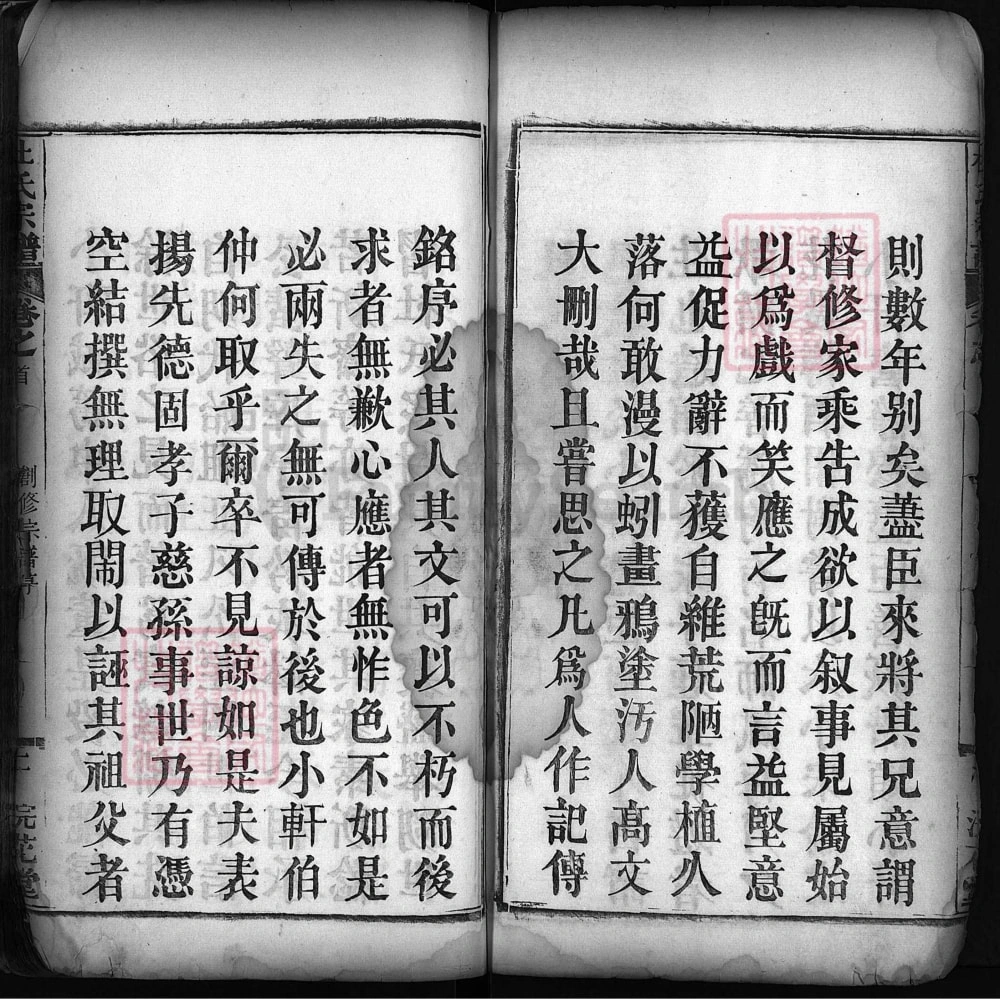 則數年别矣藎臣來將其兄意謂
督修家乘告成欲以叙事見屬始
以爲戲而笑應之旣而言益堅意
益促力辭不獲自維荒陋學植久
落何敢漫以蚓畫鴉塗汚人高文
大刪哉且嘗思之凡爲人作記傳
銘序必其人其文可以不朽而後
求者無歉心應者無怍色不如是
必兩失之無可傳於後也小軒伯
仲何取乎爾卒不見諒如是夫表
揚先德固孝子慈孫事世乃有憑
空結撰無理取鬧以誣其祖父者
杜氏宗譜 卷之首 創修宗譜序 二 浣花堂